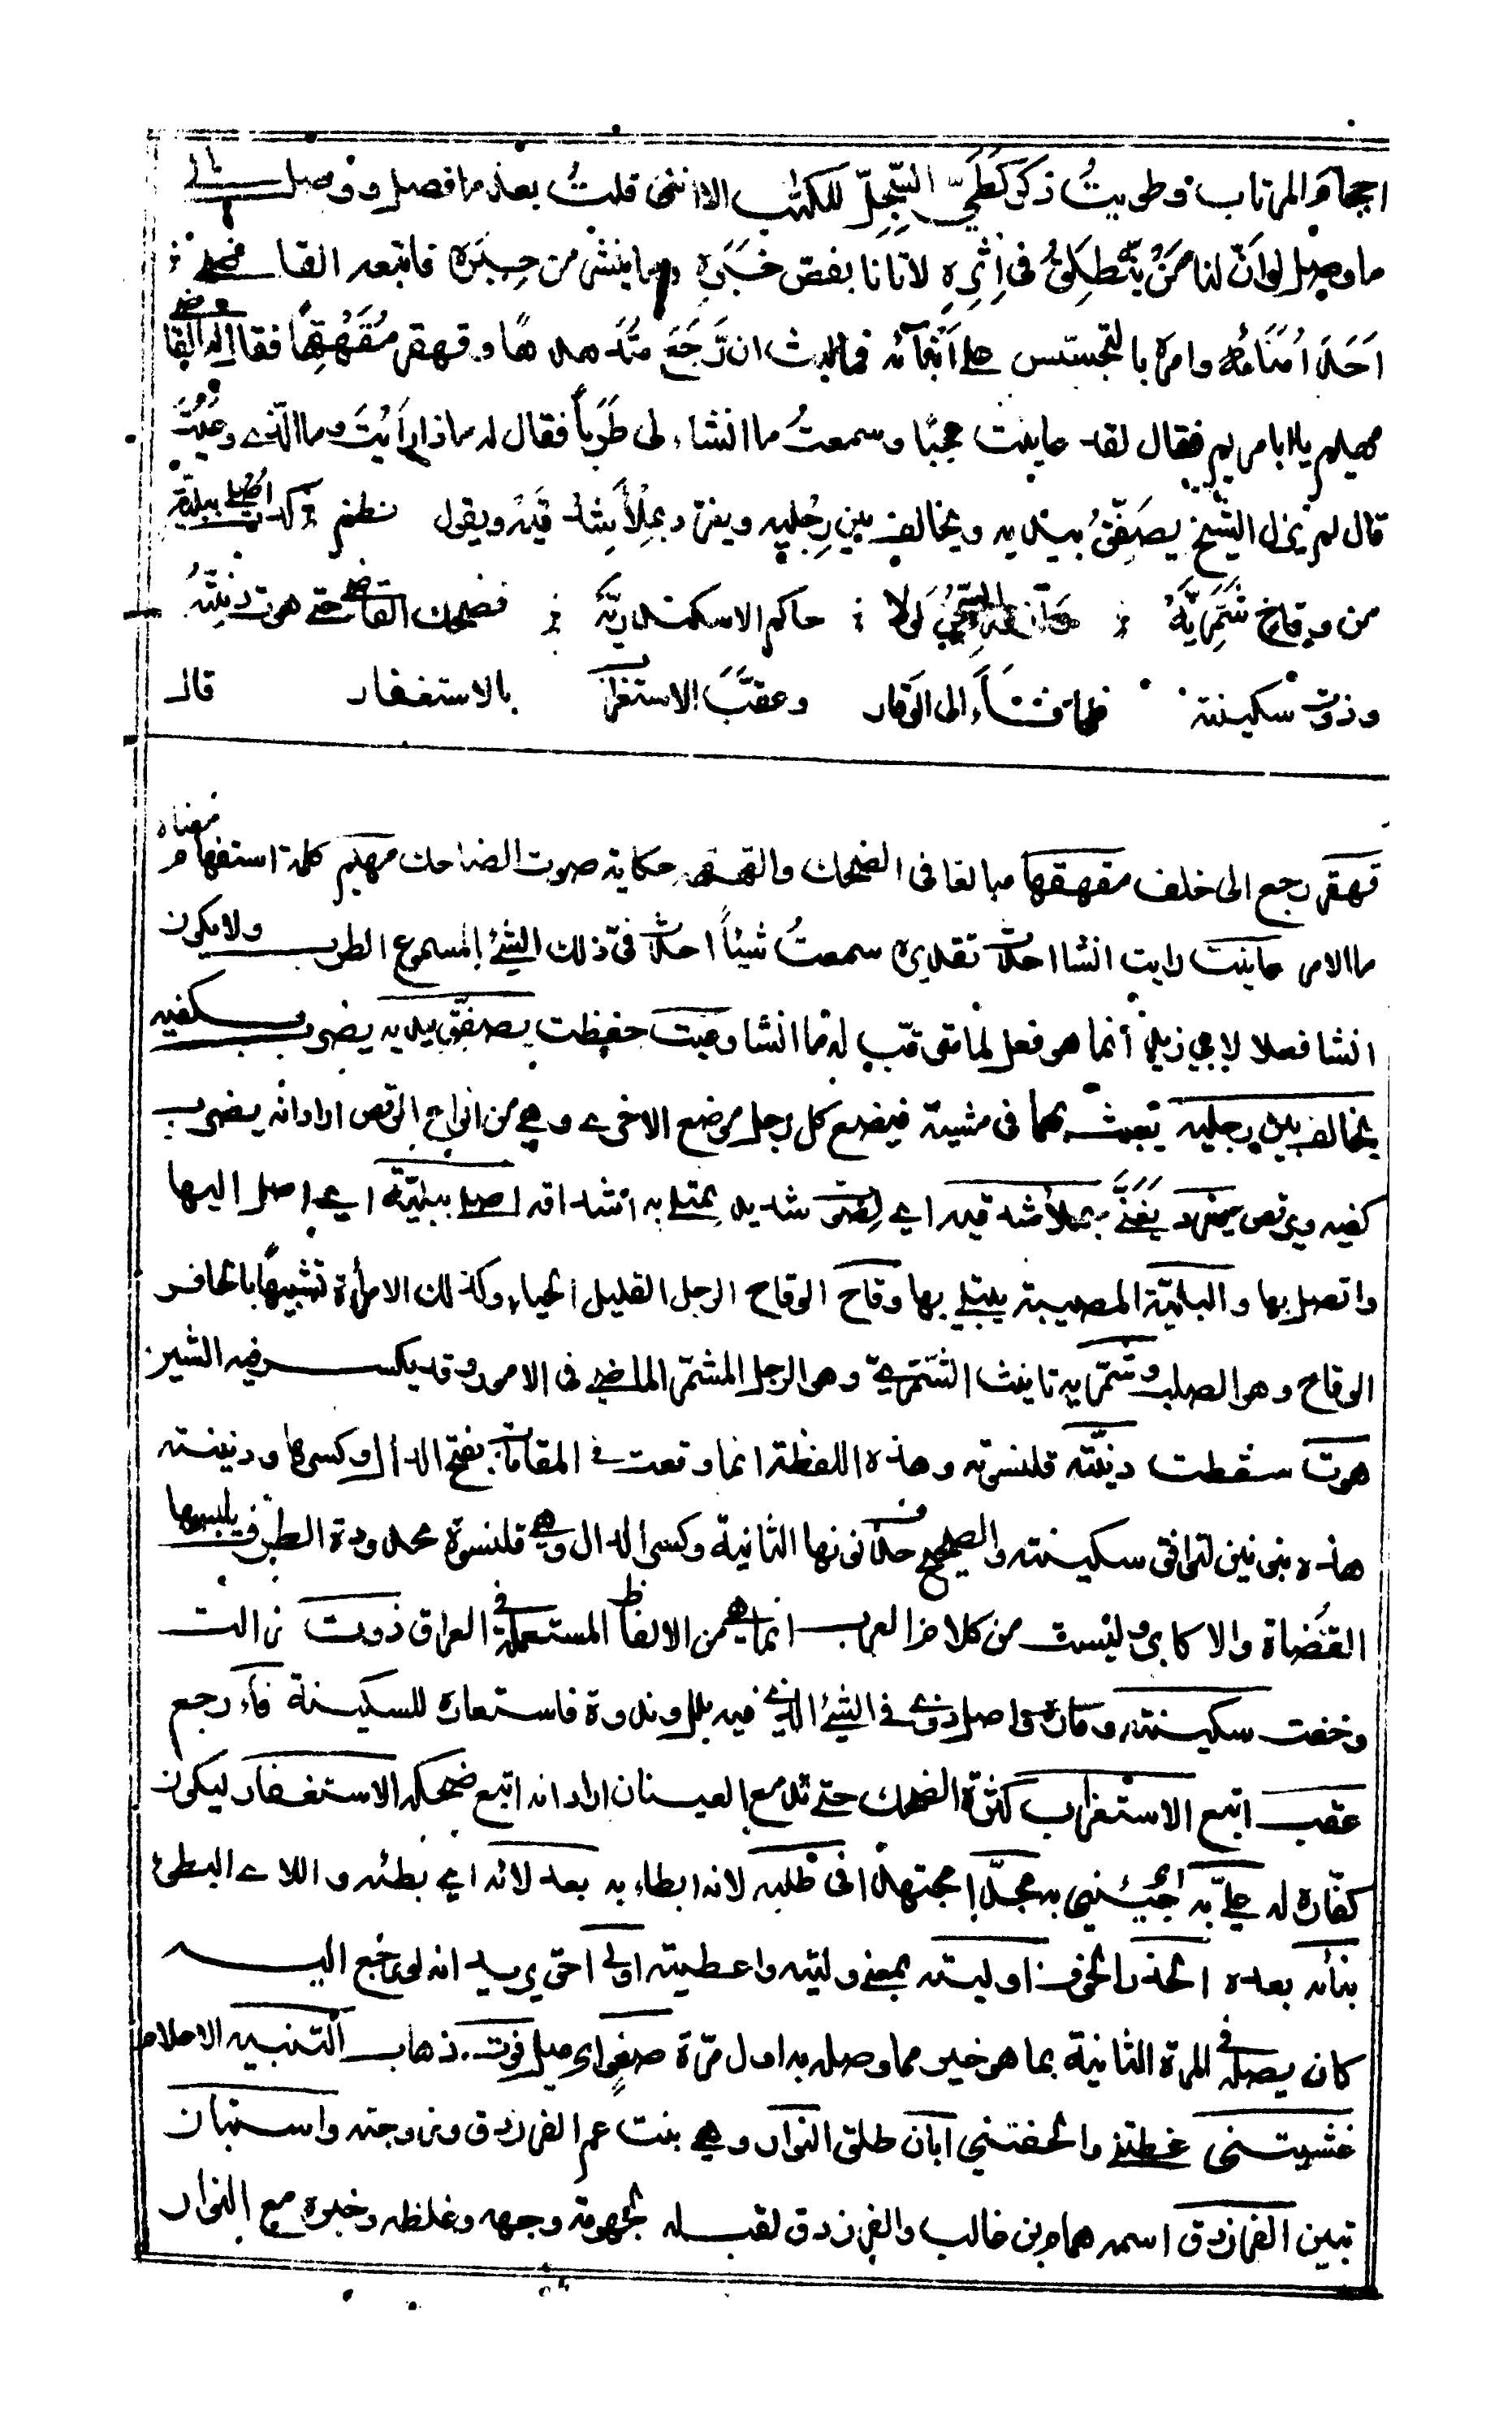 احجام المرتاب وطويت ذكره كطي السجل للكتاب الا انني قلت بعد ما فصل ووصل الى
ما وصل لو ان لنا من ينطلق في اثره لاتانا بفص خبره وبما ينشر من حبره فاتبعه القاضي
احد امنائه وامره بالتجسس على انبائه فما لبث ان رجع متدهدها وقهقر مقهقها فقال له القاضي
مهيم يا ابا مريم فقال لقد عاينت عجبا وسمعت ما انشاء لي طربا فقال له ماذا رايت وما الذي وعيت
قال لم يزل الشيخ يصفق بيديه ويخالف بين رجليه ويغرد بملأ شدقيه ويقول نظم كدت اصلى ببلية
من وقاح شمرية وازور السجن لولا حاكم الاسكندرية فضحك القاضي حتى هوت دنيته
وذوت سكينته فلما فاء الى الوقار وعقب الاستغراب بالاستغفار قال
قهقر رجع الى خلف مقهقها مبالغا في الضحك والقهقهة حكاية صوت الضاحك مهيم كلمة استفهام معناه
ما الامر عاينت رايت انشا احدث تقديره سمعت شيئاً احدث في ذلك الشئ المسموع الطرب ولا يكون
انشا فعلا لابي زيد انما هو فعل لما تقرب له ما انشا وعيت حفظت يصفق بيديه يضرب بكفيه
يخالف بين رجليه يعبث بهما في مشيته فيضع كل رجل موضع الاخرى وهي من انواع الرقص اراد انه يضرب
كفيه ويرقص يغرد يغني بملأ شدقيه اي لصوت شديد يمتلى به اشداقه اصلى ببلية اي اصل اليها
واتصل بها والبلية المصيبة يبتلى بها وقاح الوقاح الرجل القليل الحياء وكذلك الامرأة تشبيها بالحافر
الوقاح وهو الصلب وشمرية تانيث الشمري وهو الرجل المشمر الماضي في الامور وقد يكسر فيه الشين
هوت سقطت دنيته قلنسوته وهذه اللفظة انما وقعت في المقامات بفتح الدال وكسرها ودنينته
هذه بنونين لتوافق سكينته والصحيح حذف نونها الثانية وكسر الدال وهي قلنسوة محدودة الطرف يلبسها
القضاة والاكابر وليست من كلام العرب انما هي من الالفاظ المستعملة في العراق ذوت زالت
وخفت سكينته وقاره واصل ذوى في الشئ الذي فيه بلل وندوة فاستعاره للسكينة فاء رجع
عقب اتبع الاستغراب كثرة الضحك حتى تدمع العينان اراد انه اتبع ضحكه الاستغفار ليكون
كفارة له علي به اجيئني به مجدا مجتهدا في طلبه لانه ابطاء به بعد لائه اي بطئه واللاى البطئ
بنأيه بعده الحذر الخوف اوليته بمعنى وليته واعطيته اولى احق يريد انه لو رجع اليه
كان يصله في المرة الثانية بما هو خير مما وصله به اول مرة صغو اى ميل فوت ذهاب التنبيه الاعلام
غشيتني غطتني والحفتني ابان طلق النوار وهي بنت عم الفرزدق وزوجته واستبان
تبين الفرزدق اسمه همام بن غالب والفرزدق لقب له لجهومة وجهه وغلظه وخبره مع النوار